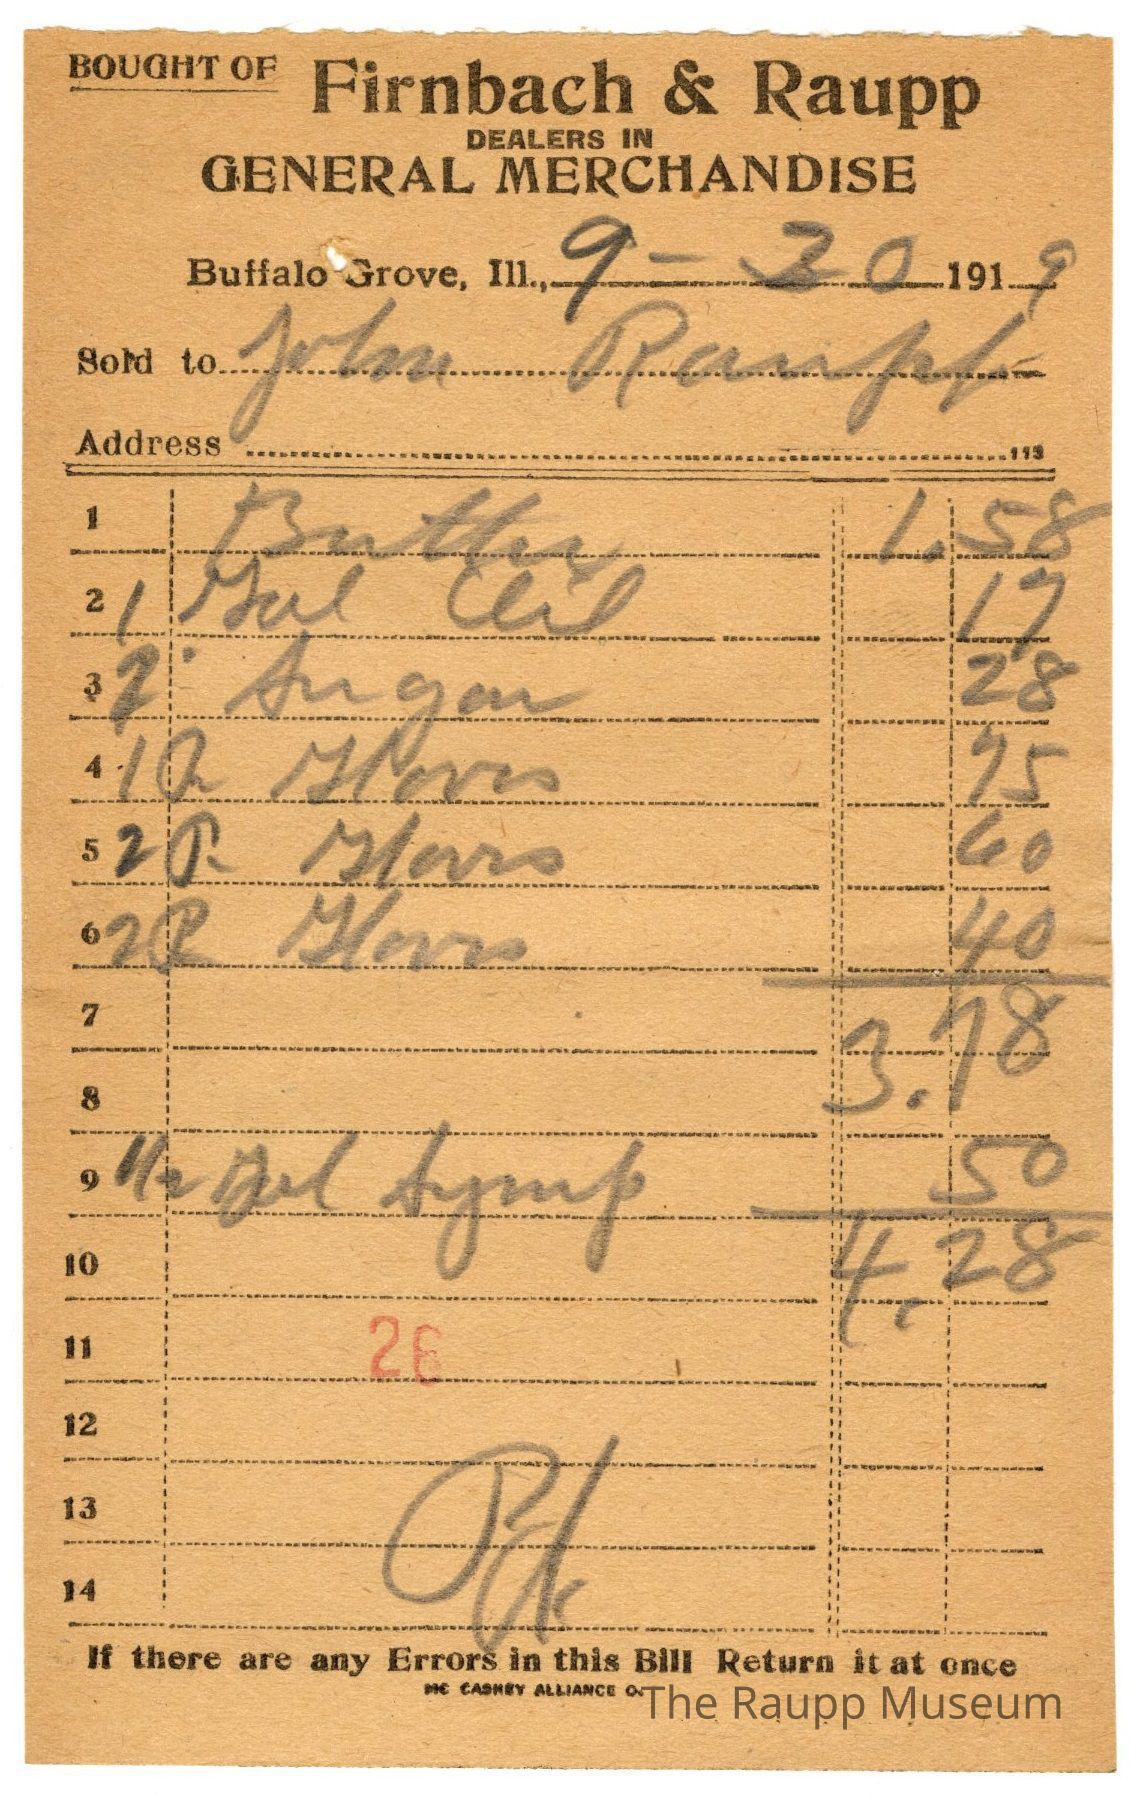 BOUGHT OF Firnbach & Raupp
DEALERS IN
GENERAL MERCHANDISE
Buffalo Grove, Ill., 9-20 1919
Sold to John Raupp
Address 113
1 Butter 1.58
2 1 Gal Oil 17
3 2 Sugar 28
4 1 P. Glovs 75
5 2 P. Glovs 60
6 2 P Glovs 40
7 3.78
8
9 1/2 Gal Syrup 50
10 4.28
11 26
12
13
14
If there are any Errors in this Bill Return it at once
MC CASKEY ALLIANCE O.
The Raupp Museum